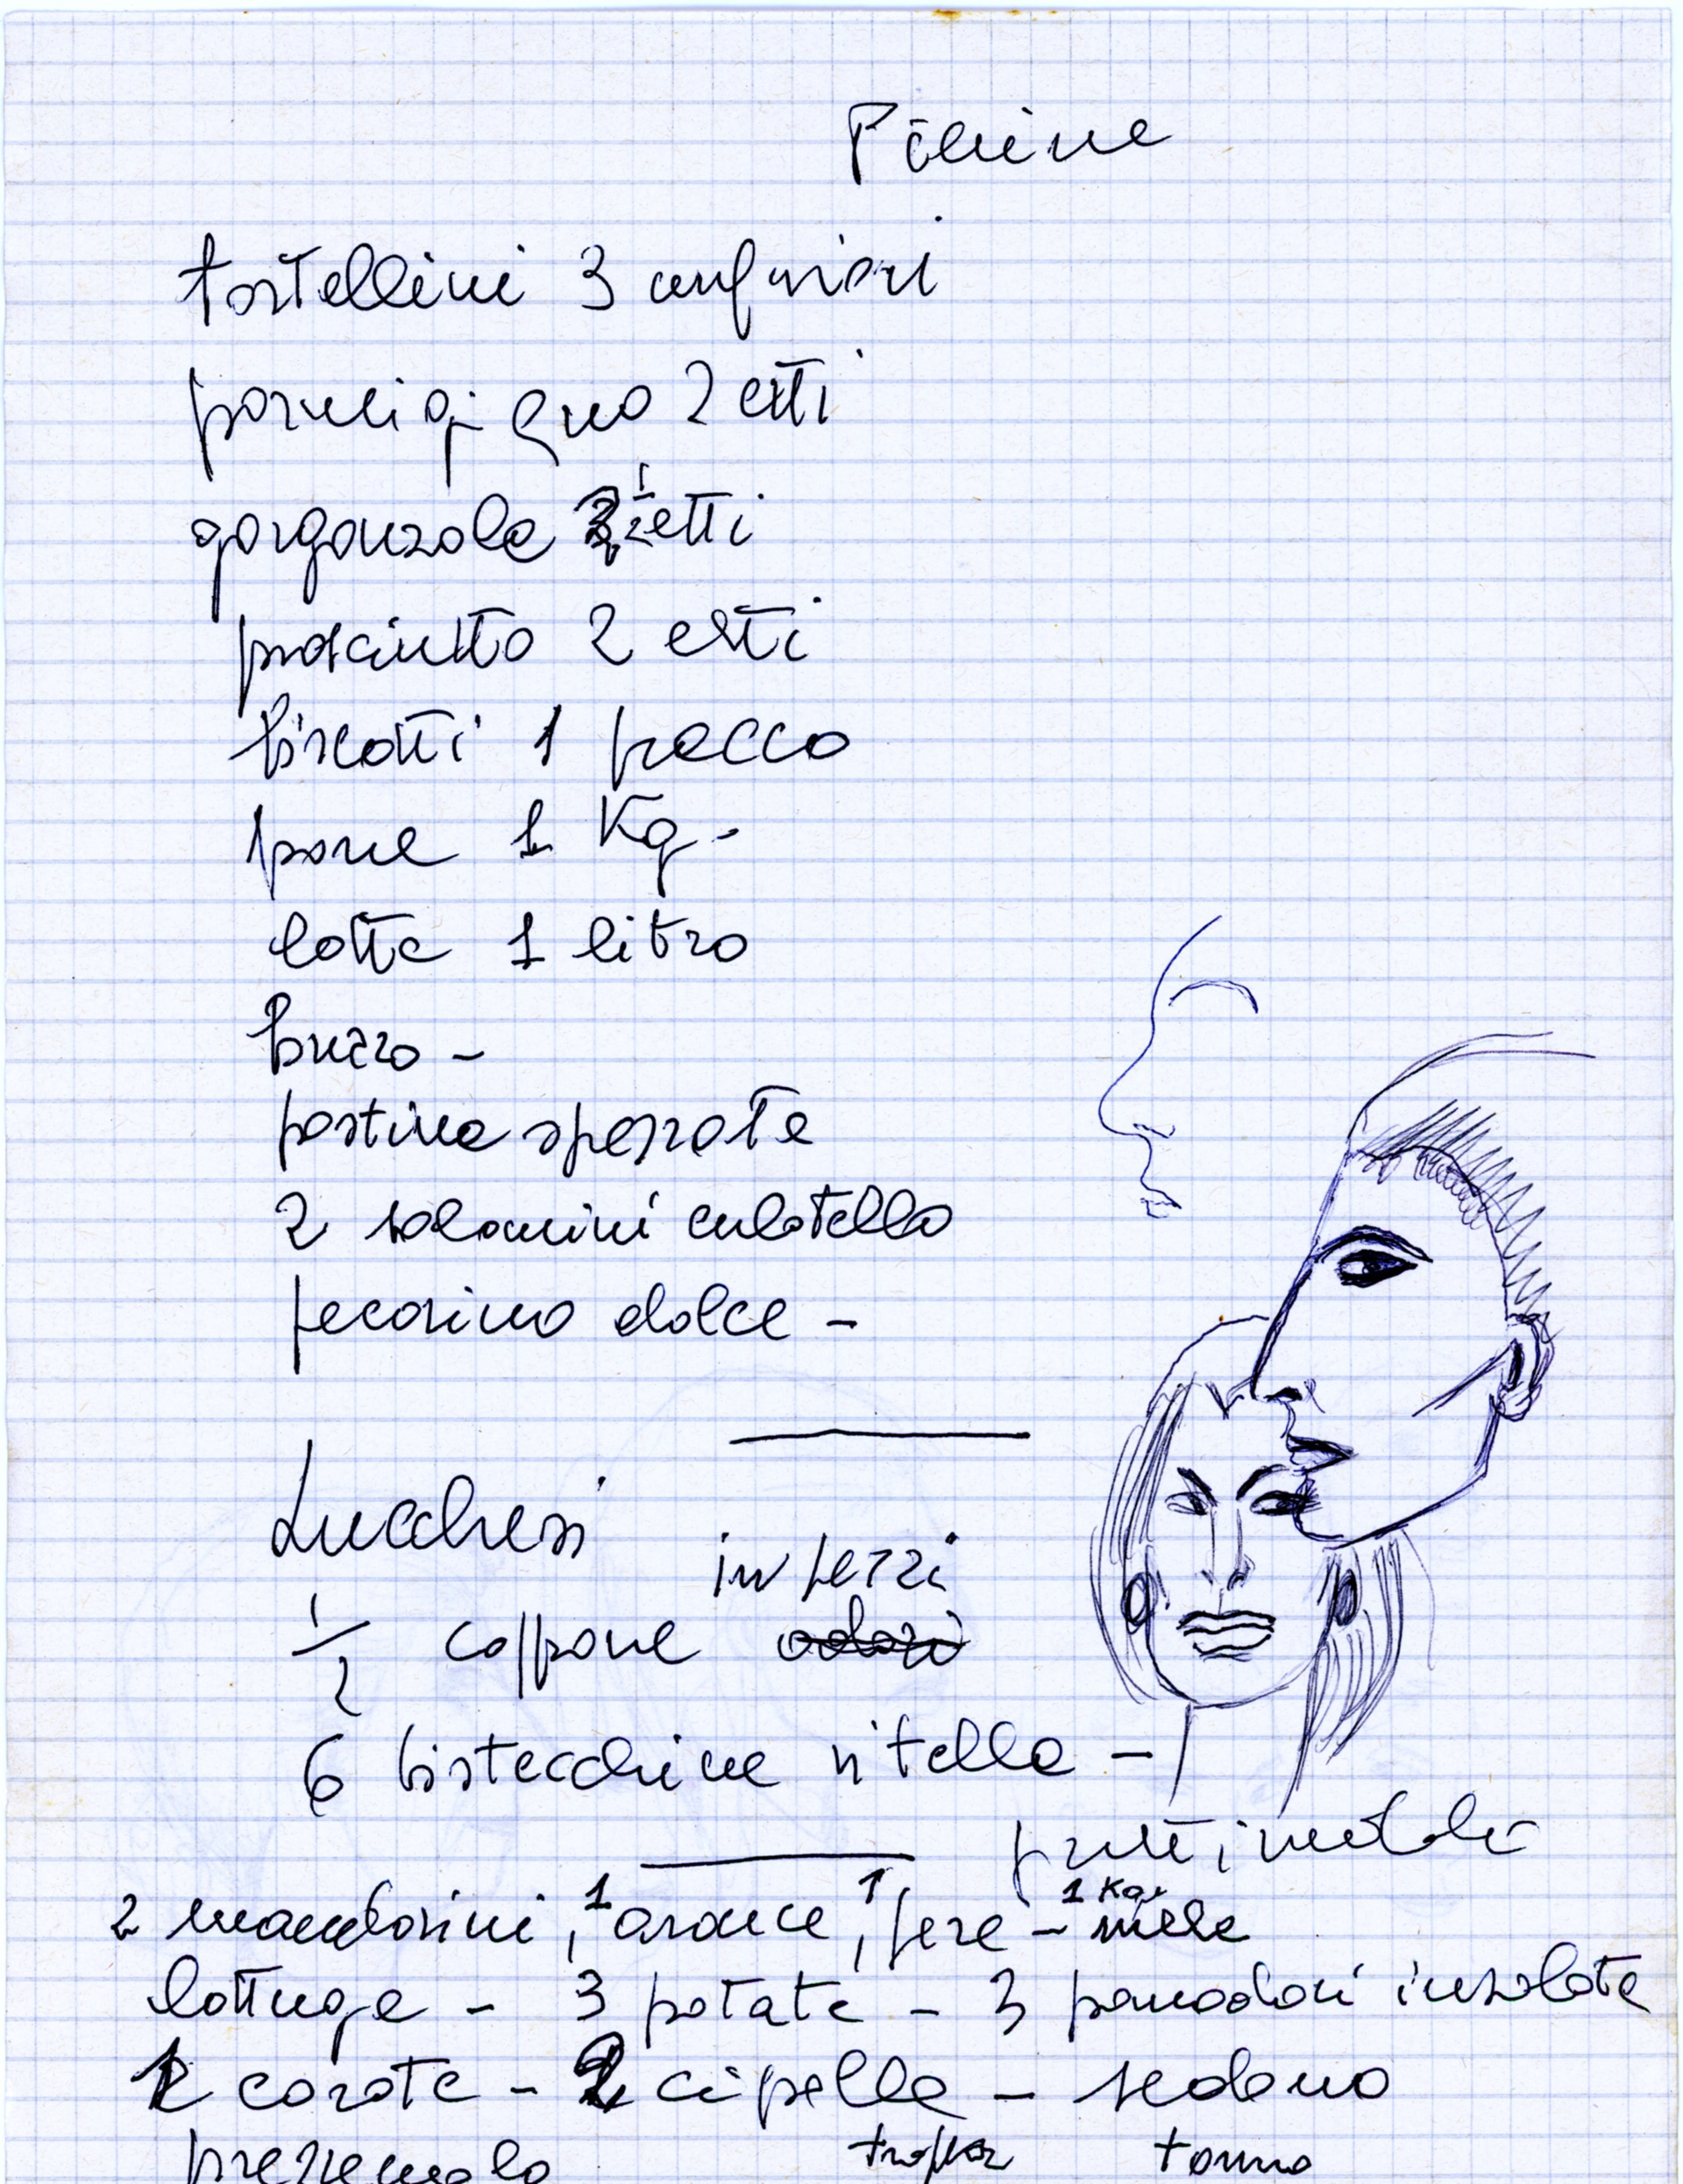 tortellini 3 confezioni
parmigiano 2 etti
gorgonzola 2 1/2 etti
prosciutto 2 etti
biscotti 1 pacco
pane 1 Kg.
latte 1 litro
burro -
pastina spezzata
2 salamini culatello
pecorino dolce -
Lucchesi
in pezzi
1/2 cappone odori
6 bistecchine vitella -
2 mandarini, 1 arance, 1 pere - 1 Kg. mele
lattuga - 3 patate - 3 pomodori insalata
carote - cipolla - sedano
prezzemolo tonno